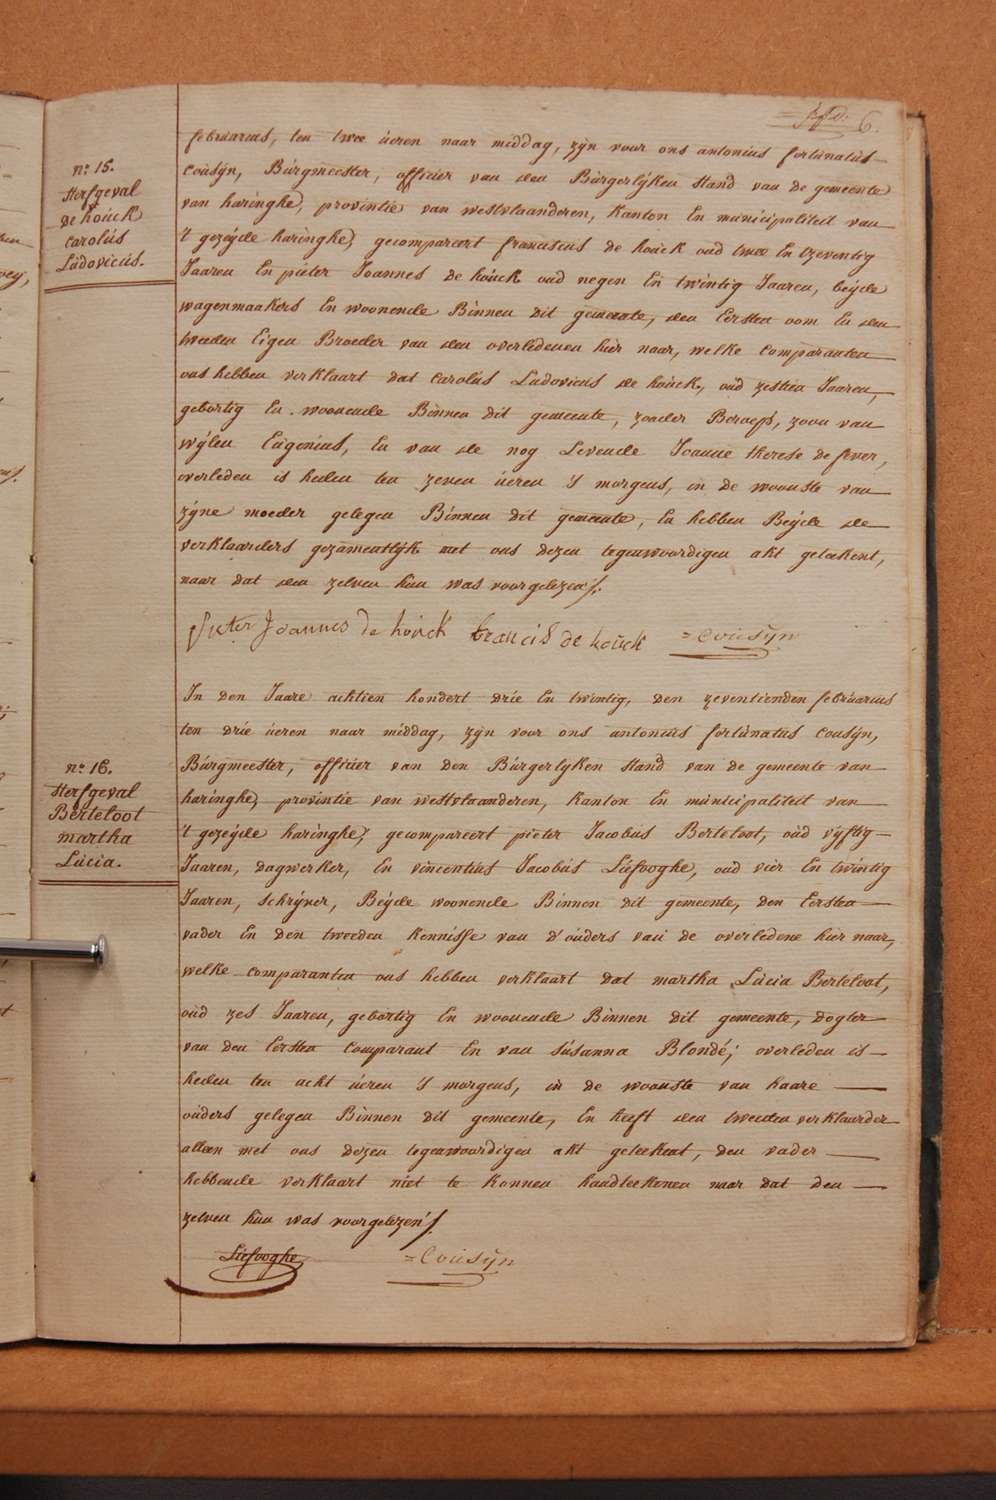 6.
n.º 15.
sterfgeval
de hoúck
carolús
Lúdovicús.
februarius, ten twee úeren naar middag, zyn voor ons antonius fortúnatús
coúsÿn, Búrgmeester, officier van den Búrgerlÿken stand van de gemeente
van haringhe, provintie van westvlaanderen, kanton En múnicipaliteit van
't gezeÿde haringhe, gecompareert franciscus de hoúck oud twee En tzeventig
Jaaren En pieter Joannes de hoúck oud negen En twintig Jaaren, beÿde
wagenmaakers En woonende Binnen dit gemeente, den Eersten oom En den
tweeden Eigen Broeder van den overledenen hier naar, welke comparanten
ons hebben verklaart dat carolús Lúdovicus de hoúck, oúd zestien Jaaren,
gebortig En woonende Binnen dit gemeente, zonder Beroep, zoon van
wÿlen Eúgenius, En van de nog Levende Joanne therese de fever,
overleden is heden ten zeven úeren 's morgens, in de woonste van
zÿne moeder gelegen Binnen dit gemeente, En hebben Beÿde de
verklaarders gezamentlÿk met ons dezen tegenwoordigen akt geteekent,
naar dat den zelven hún was voorgelezen/.
Pieter Joannes de hoúck francis de hoúck = coúsÿn
n.º 16.
sterfgeval
Berteloot
martha
Lúcia.
In den Jaare achtien hondert drie En twintig, den zeventienden febrúarius
ten drie úeren naar middag, zyn voor ons antonius fortúnatús coúsÿn,
Búrgmeester, officier van den Búrgerlyken stand van de gemeente van
haringhe, provintie van westvlaanderen, kanton En múnicipaliteit van
't gezeÿde haringhe, gecompareert pieter Jacobús Berteloot, oúd vÿftig
Jaaren, dagwerker, En vincentius Jacobús Liefooghe, oud vier En twintig
Jaaren, schrÿver, Beÿde woonende Binnen dit gemeente, den Eersten
vader En den tweeden kennisse van d'oúders van de overledene hier naar,
welke comparanten ons hebben verklaart dat martha Lúcia Berteloot,
oúd zes Jaaren, gebortig En woonende Binnen dit gemeente, dogter
van den Eersten comparant En van súsanna Blondé; overleden is
heden ten acht úeren 's morgens, in de woonste van haare
oúders gelegen Binnen dit gemeente, En heeft den tweeden verklaarder
alleen met ons dezen tegenwoordigen akt geteekent, den vader
hebbende verklaart niet te konnen handteekenen naar dat den
zelven hún was voorgelezen/.
Liefooghe = Coúsÿn